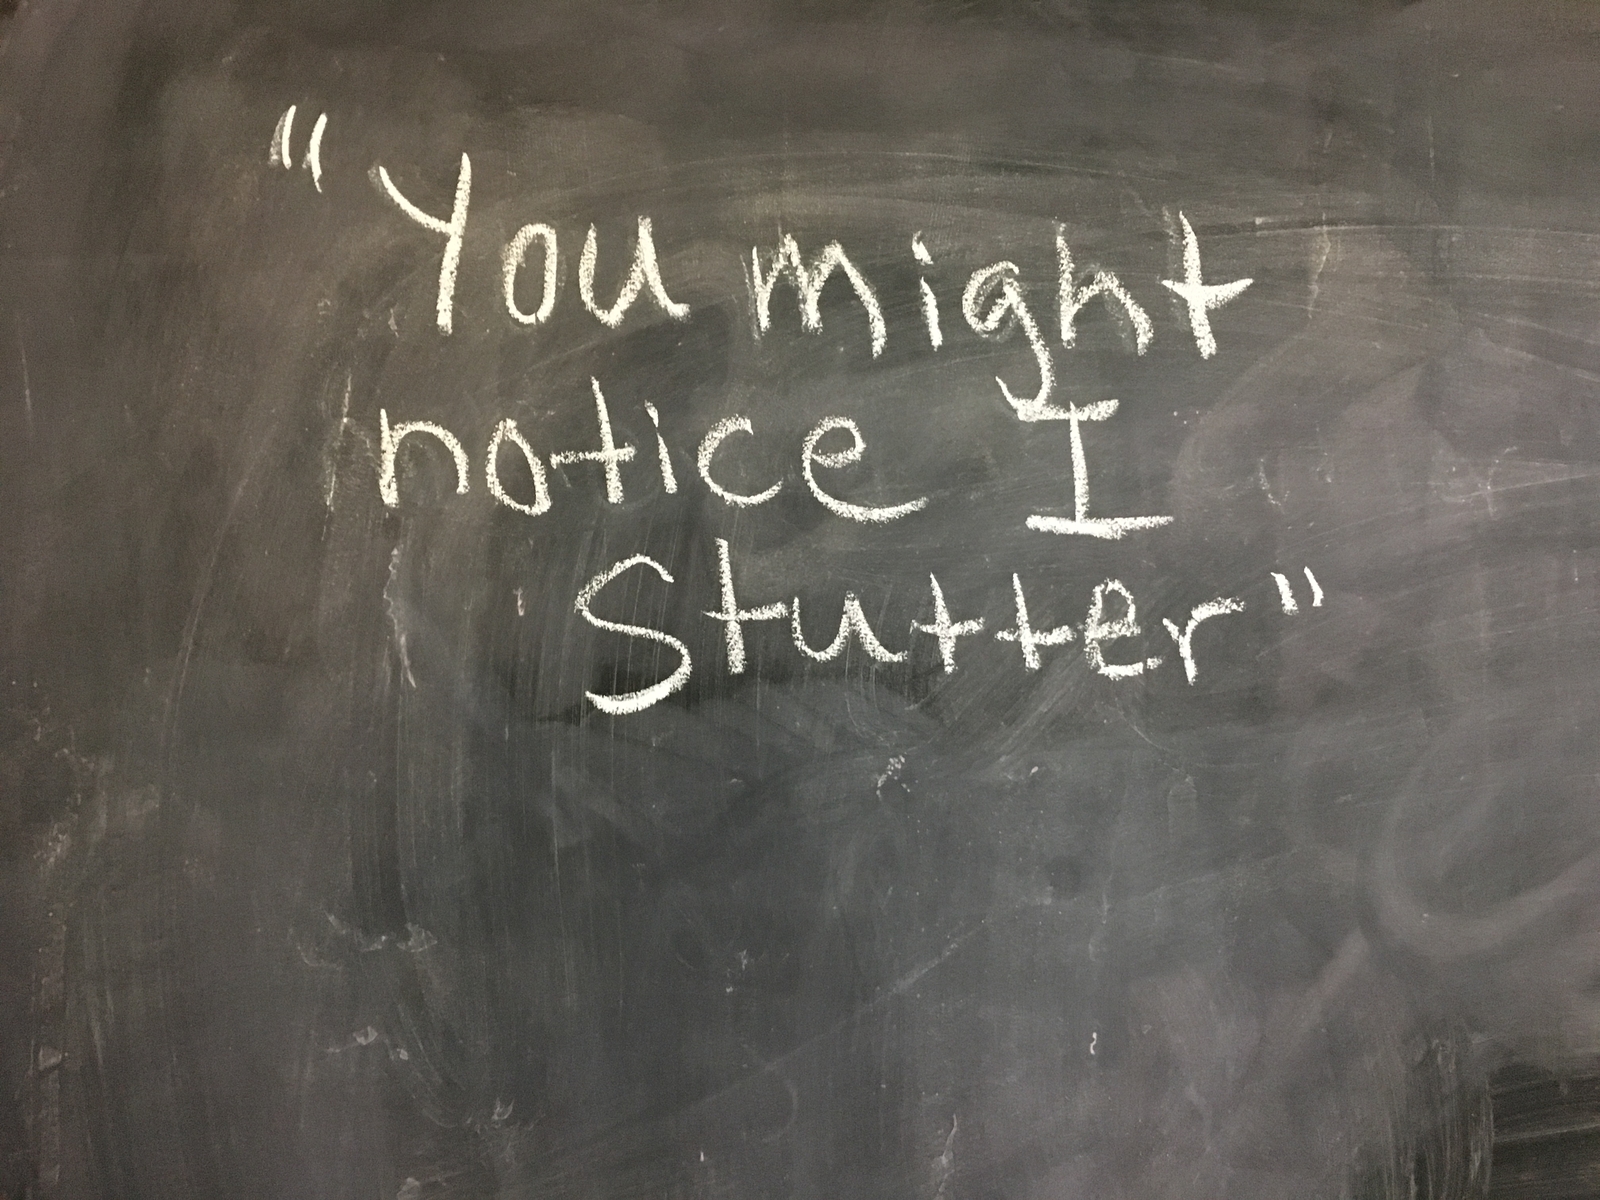 "You might
notice I
Stutter"